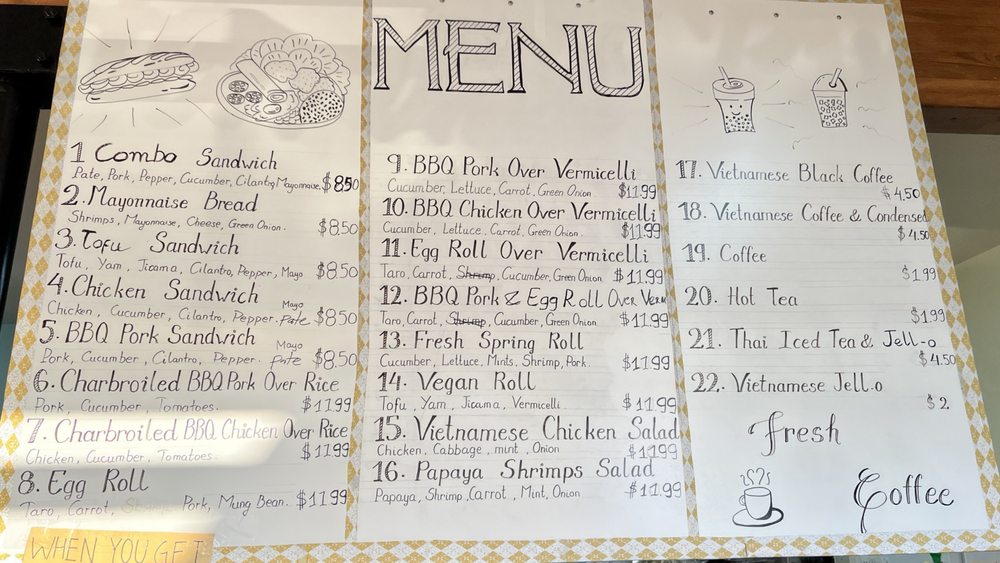 MENU
1 Combo Sandwich
Pate, Pork, Pepper, Cucumber, Cilantro, Mayonnaise. $8.50
2. Mayonnaise Bread
Shrimps, Mayonnaise, Cheese, Green Onion. $8.50
3. Tofu Sandwich
Tofu, Yam, Jicama, Cilantro, Pepper, Mayo $8.50
4. Chicken Sandwich
Mayo
Chicken, Cucumber, Cilantro, Pepper. Pate $8.50
5. BBQ Pork Sandwich
Mayo
Pork, Cucumber, Cilantro, Pepper. Pate $8.50
6. Charbroiled BBQ Pork Over Rice
Pork, Cucumber, Tomatoes. $11.99
7. Charbroiled BBQ Chicken Over Rice
Chicken, Cucumber, Tomatoes. $11.99
8. Egg Roll
Taro, Carrot, Shrimp Pork, Mung Bean. $11.99
WHEN YOU GET
9. BBQ Pork Over Vermicelli
Cucumber, Lettuce, Carrot, Green Onion $11.99
10. BBQ Chicken Over Vermicelli
Cucumber, Lettuce, Carrot, Green Onion. $11.99
11. Egg Roll Over Vermicelli
Taro, Carrot, Shrimp, Cucumber, Green Onion $11.99
12. BBQ Pork & Egg Roll Over Verm
Taro, Carrot, Shrimp, Cucumber, Green Onion $11.99
13. Fresh Spring Roll
Cucumber, Lettuce, Mints, Shrimp, Pork. $11.99
14. Vegan Roll
Tofu, Yam, Jicama, Vermicelli $11.99
15. Vietnamese Chicken Salad
Chicken, Cabbage, mint, Onion $11.99
16. Papaya Shrimps Salad
Papaya, Shrimp, Carrot, Mint, Onion $11.99
17. Vietnamese Black Coffee
$4.50
18. Vietnamese Coffee & Condensed
$4.50
19. Coffee
$1.99
20. Hot Tea
$1.99
21. Thai Iced Tea & Jell-o
$4.50
22. Vietnamese Jell-o
$2
Fresh
Coffee